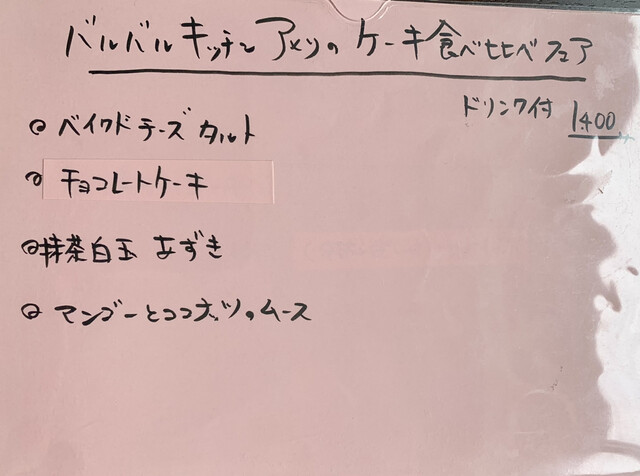 バルバルキッチン アメツの ケーキ食べ比べフェア
ドリンク付 1400
◎ ベイクドチーズタルト
◎ チョコレートケーキ
◎ 抹茶白玉 あずき
◎ マンゴーとココナッツのムース